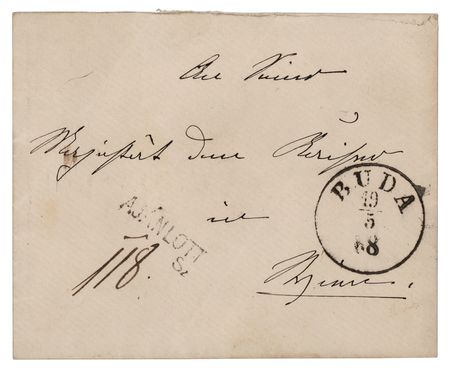 An Seine
Majestät den Kaiser
in
Wien.
BUDA
19
5
68
AJÁNLOTT
Sz.
118.